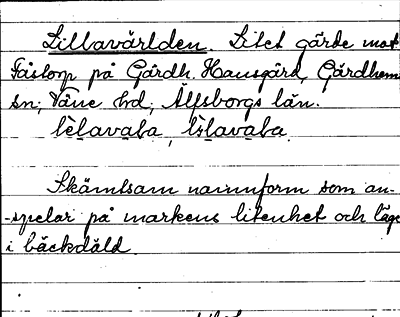 Lillavärlden. Litet gärde mot
Fåstorp på Gärdh. Hansgärd, Gärdhem
sn; Väne hd; Älfsborgs län.
Skämtsam namnform som an-
-spelar på markens litenhet och läge
i bäckdåld.